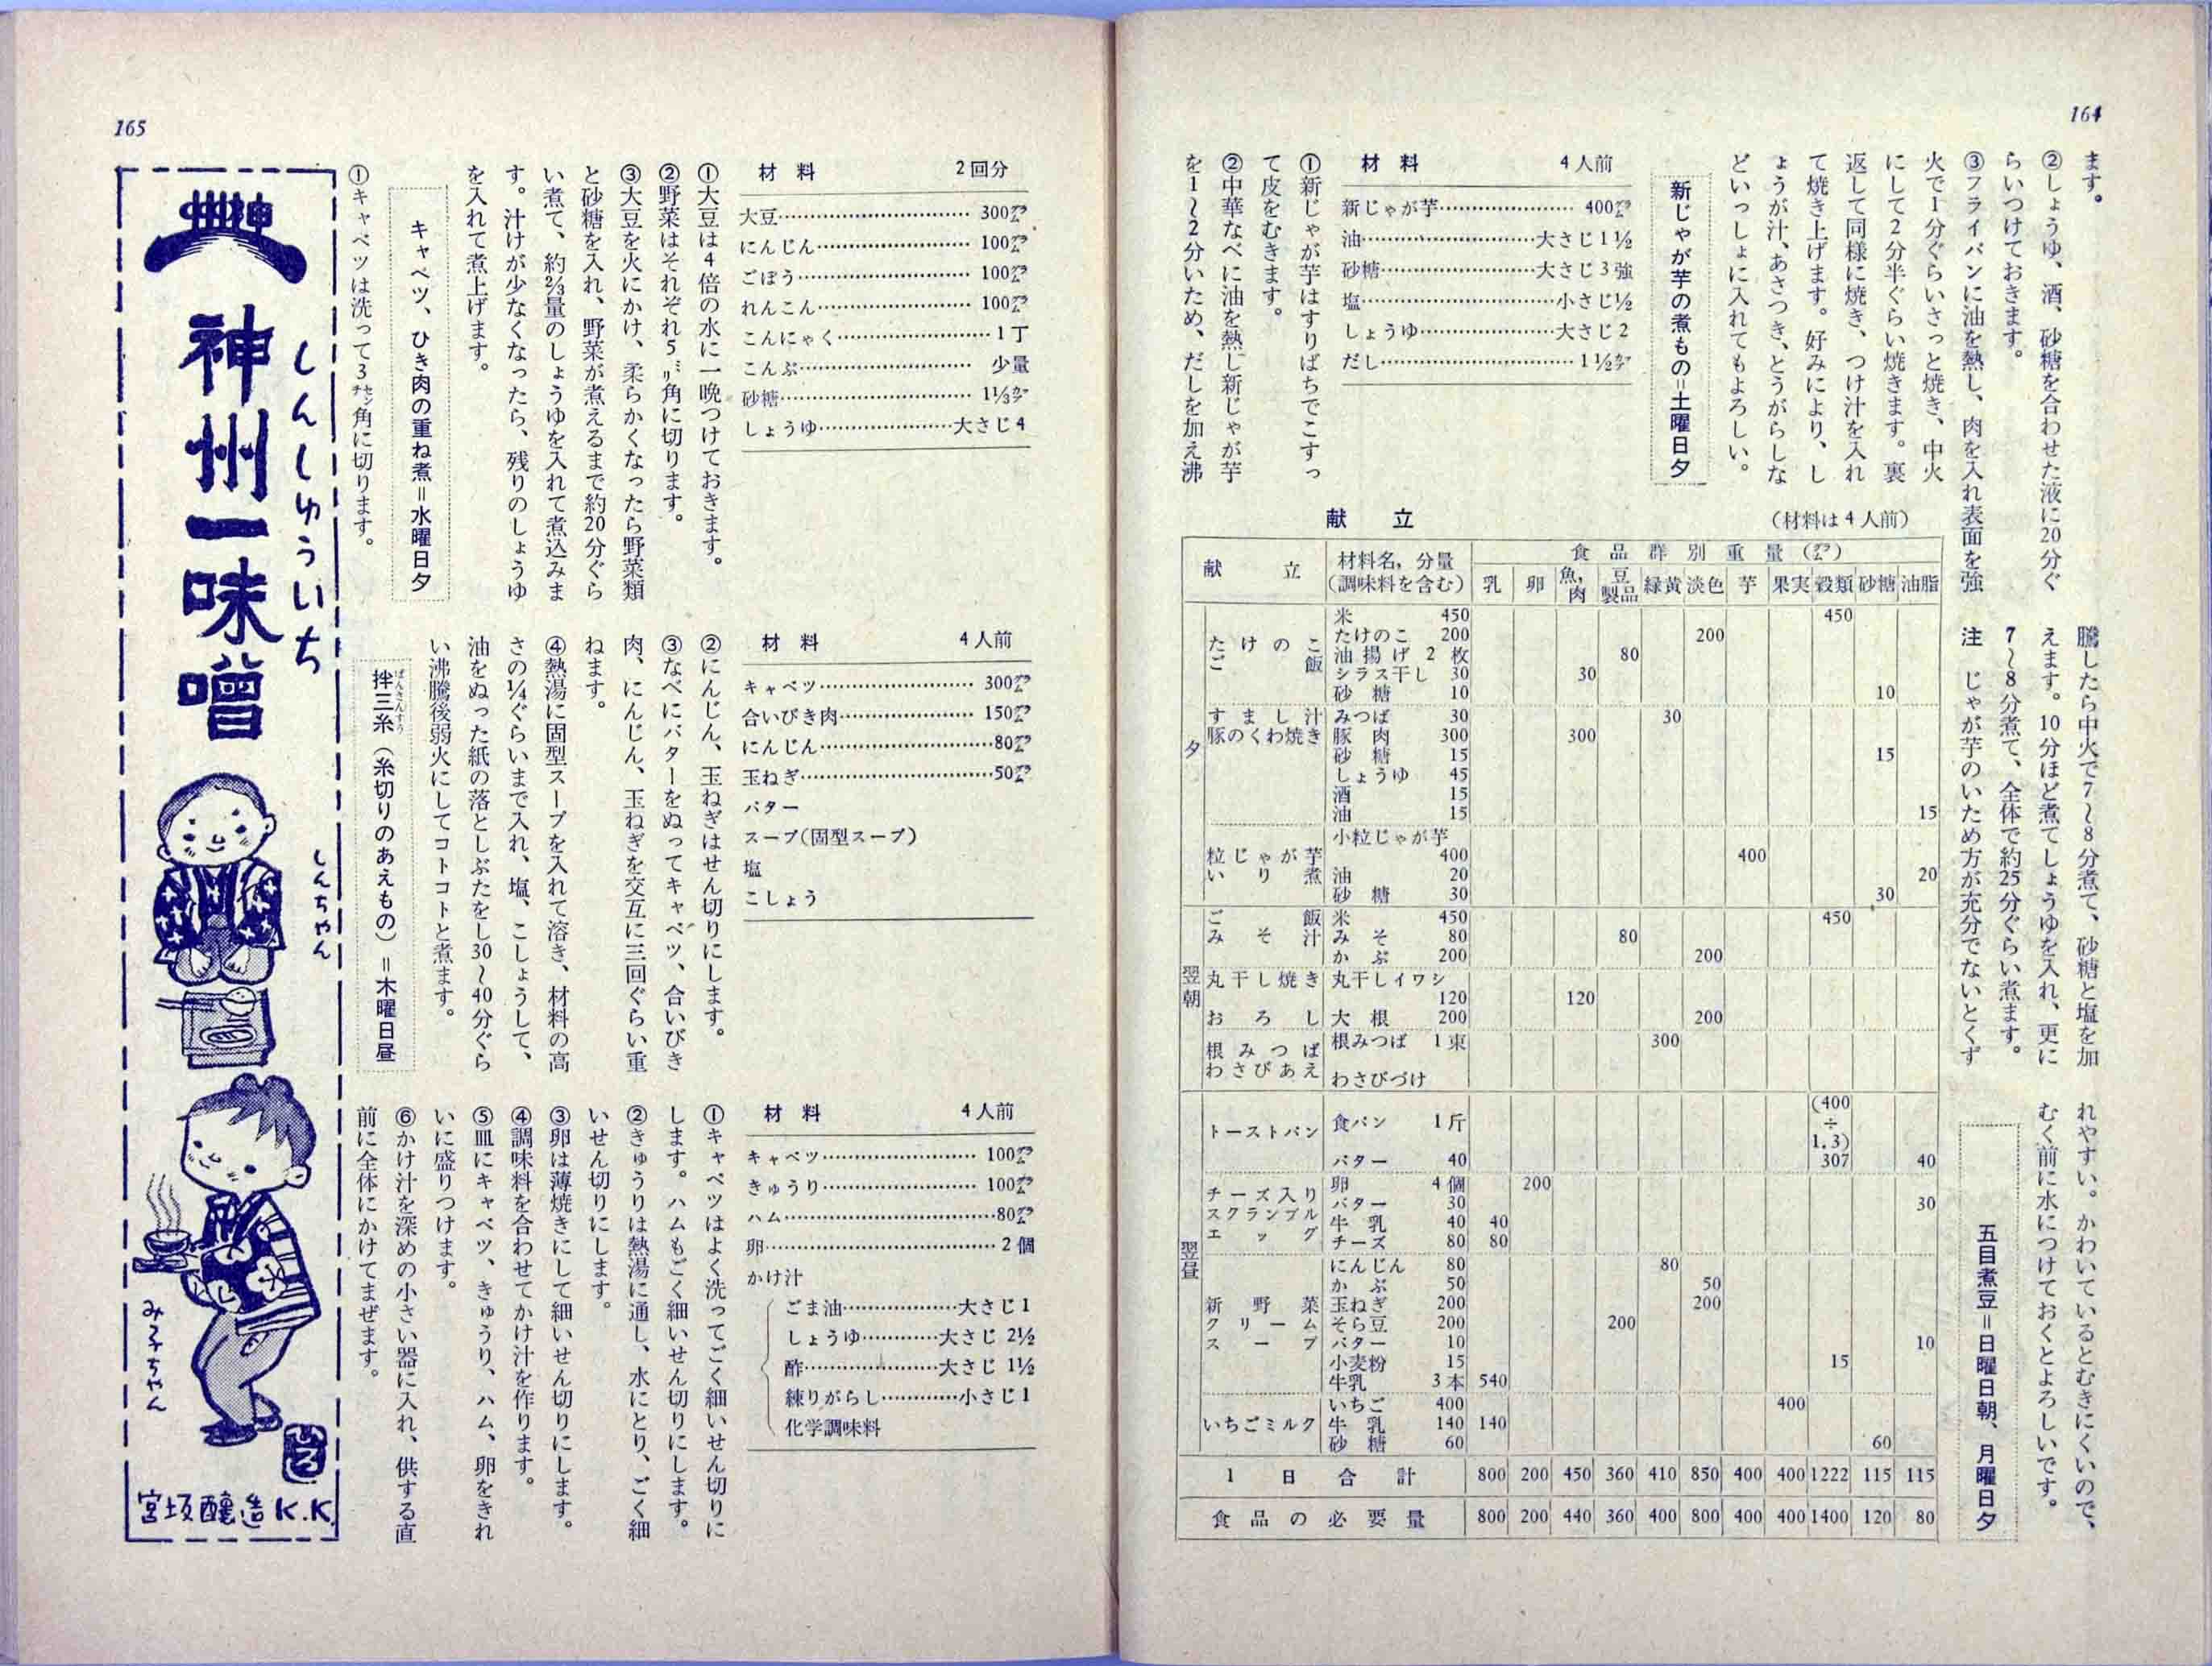 164
ます。
②しょうゆ、酒、砂糖を合わせた液に20分ぐ
らいつけておきます。
③フライパンに油を熱し、肉を入れ表面を強
火で1分ぐらいさっと焼き、中火
にして2分半ぐらい焼きます。裏
返して同様に焼き、つけ汁を入れ
て焼き上げます。好みにより、し
ょうが汁、あさつき、とうがらしな
どいっしょに入れてもよろしい。
新じゃが芋の煮もの＝土曜日夕
材料 4人前
新じゃが芋…………………400㌘
油……………………大さじ1½
砂糖……………………大さじ3強
塩………………………小さじ½
しょうゆ………………大さじ2
だし………………………1½㌍
①新じゃが芋はすりばちでこすっ
て皮をむきます。
②中華なべに油を熱し新じゃが芋
を1〜2分いため、だしを加え沸
騰したら中火で7〜8分煮て、砂糖と塩を加
えます。10分ほど煮てしょうゆを入れ、更に
7〜8分煮て、全体で約25分ぐらい煮ます。
注 じゃが芋のいため方が充分でないとくず
れやすい。かわいているとむきにくいので、
むく前に水につけておくとよろしいです。
五目煮豆＝日曜日朝、月曜日夕
献立 (材料は4人前)
献立 材料名，分量(調味料を含む) 食品群別重量(㌘)
乳 卵 魚，肉 豆製品 緑黄 淡色 芋 果実 穀類 砂糖 油脂
夕
たけのこご飯 米 450 450
たけのこ 200 200
油揚げ 2枚 80
シラス干し 30 30
砂糖 10 10
すまし汁 みつば 30 30
豚のくわ焼き 豚肉 300 300
砂糖 15 15
しょうゆ 45
酒 15
油 15 15
粒じゃが芋いり煮 小粒じゃが芋 400 400
油 20 20
砂糖 30 30
翌朝
ご飯 米 450 450
みそ汁 みそ 80 80
かぶ 200 200
丸干し焼き 丸干しイワシ 120 120
おろし 大根 200 200
根みつばわさびあえ 根みつば 1束 300
わさびづけ
翌昼
トーストパン 食パン 1斤 (400÷1.3) 307
バター 40 40
チーズ入りスクランブルエッグ 卵 4個 200
バター 30 30
牛乳 40 40
チーズ 80 80
新野菜クリームスープ にんじん 80 80
かぶ 50 50
玉ねぎ 200 200
そら豆 200 200
バター 10 10
小麦粉 15 15
牛乳 3本 540
いちごミルク いちご 400 400
牛乳 140 140
砂糖 60 60
1日合計 800 200 450 360 410 850 400 400 1222 115 115
食品の必要量 800 200 440 360 400 800 400 400 1400 120 80
165
材料 2回分
大豆…………………………300㌘
にんじん……………………100㌘
ごぼう………………………100㌘
れんこん……………………100㌘
こんにゃく……………………1丁
こんぶ………………………少量
砂糖…………………………1⅓㌍
しょうゆ…………………大さじ4
①大豆は4倍の水に一晩つけておきます。
②野菜はそれぞれ5㍉角に切ります。
③大豆を火にかけ、柔らかくなったら野菜類
と砂糖を入れ、野菜が煮えるまで約20分ぐら
い煮て、約⅔量のしょうゆを入れて煮込みま
す。汁けが少なくなったら、残りのしょうゆ
を入れて煮上げます。
キャベツ、ひき肉の重ね煮＝水曜日夕
①キャベツは洗って3㌢角に切ります。
材料 4人前
キャベツ……………………300㌘
合いびき肉…………………150㌘
にんじん……………………80㌘
玉ねぎ………………………50㌘
バター
スープ(固型スープ)
塩
こしょう
②にんじん、玉ねぎはせん切りにします。
③なべにバターをぬってキャベツ、合いびき
肉、にんじん、玉ねぎを交互に三回ぐらい重
ねます。
④熱湯に固型スープを入れて溶き、材料の高
さの¼ぐらいまで入れ、塩、こしょうして、
油をぬった紙の落としぶたをし30〜40分ぐら
い沸騰後弱火にしてコトコトと煮ます。
拌三糸（糸切りのあえもの）＝木曜日昼
ばんさんすう
材料 4人前
キャベツ……………………100㌘
きゅうり……………………100㌘
ハム…………………………80㌘
卵……………………………2個
かけ汁
ごま油………………大さじ1
しょうゆ…………大さじ2½
酢…………………大さじ1½
練りがらし…………小さじ1
化学調味料
①キャベツはよく洗ってごく細いせん切りに
します。ハムもごく細いせん切りにします。
②きゅうりは熱湯に通し、水にとり、ごく細
いせん切りにします。
③卵は薄焼きにして細いせん切りにします。
④調味料を合わせてかけ汁を作ります。
⑤皿にキャベツ、きゅうり、ハム、卵をきれ
いに盛りつけます。
⑥かけ汁を深めの小さい器に入れ、供する直
前に全体にかけてまぜます。
しんしゅういち
神州一味噌
しんちゃん
み子ちゃん
宮坂醸造K.K.